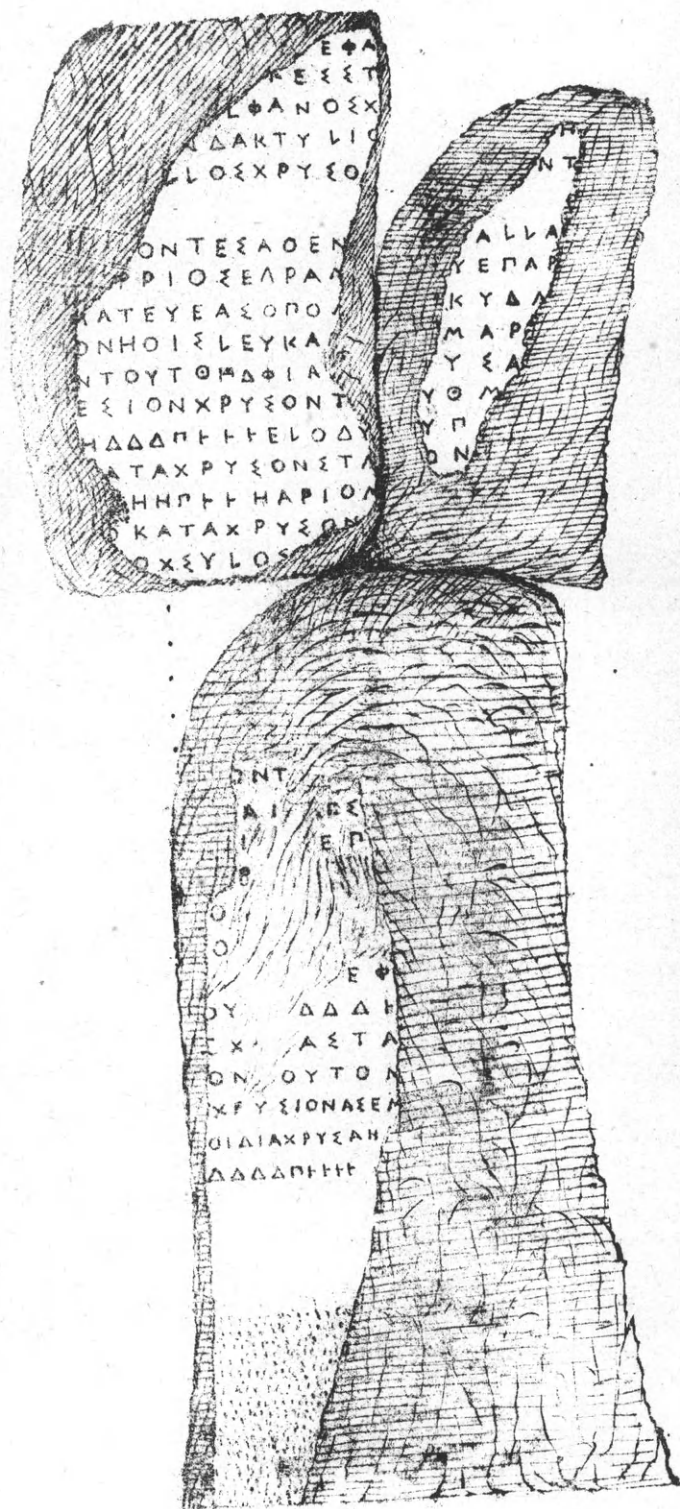 ΕΦΑ
ΚΕΣΣΤ
ΕΦΑΝΟΣΧ
ΔΑΚΤΥLΙΟ
LΟΣΧΡΥΣΟ
ΟΝΤΕΣΑΘΕΝ
ΡΙΟΣΕΔΡΑΛ
ΑΤΕΥΕΑΣΟΠΟΛ
ΟΝΗΟΙΣLΕΥΚΑ
ΝΤΟΥΤΘΗΔΦΙΑ
ΕΣΙΟΝΧΡΥΣΟΝΤ
ΗΔΔΔΠͰͰͰΕLΟΔΥ
ΑΤΑΧΡΥΣΟΝΣΤΑ
ΗΗΠͰͰΗΑΡΙΟΛ
ΚΑΤΑΧΡΥΣΟΝ
ΟΧΣΥLΟΣ
Η
ΝΤ
ΑLLΑ
ΥΕΠΑΡ
ΚΥΔΛ
ΜΑΡ
ΥΣΑ
ΥΘΜ
ΥΠ
ΟΝ
ΟΝΤ
ΑΙ ΕΣ
Ι ΕΠ
Θ
Ο
Ο
ΕΦ
ΟΥ ΔΔΔͰ
ΣΧ ΑΣΤΑ
ΟΝ ΟΥΤΟΝ
ΧΡΥΣΙΟΝΑΣΕΜ
ΟΙΔΙΑΧΡΥΣΑΗ
ΔΔΔΔΠͰͰͰͰ